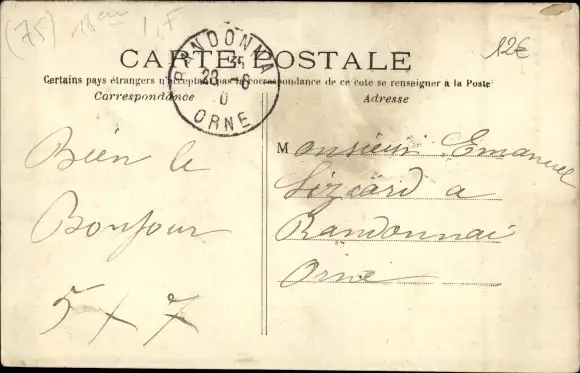 (75) 18em
12€
CARTE POSTALE
Certains pays étrangers n'acceptant pas la correspondance de ce coté se renseigner à la Poste
Correspondance
Adresse
RANDONNAI
35
23 -6
0
ORNE
Bien le
Bonjour
5 + 7
Monsieur Emanuel
a
Randonnai
Orne